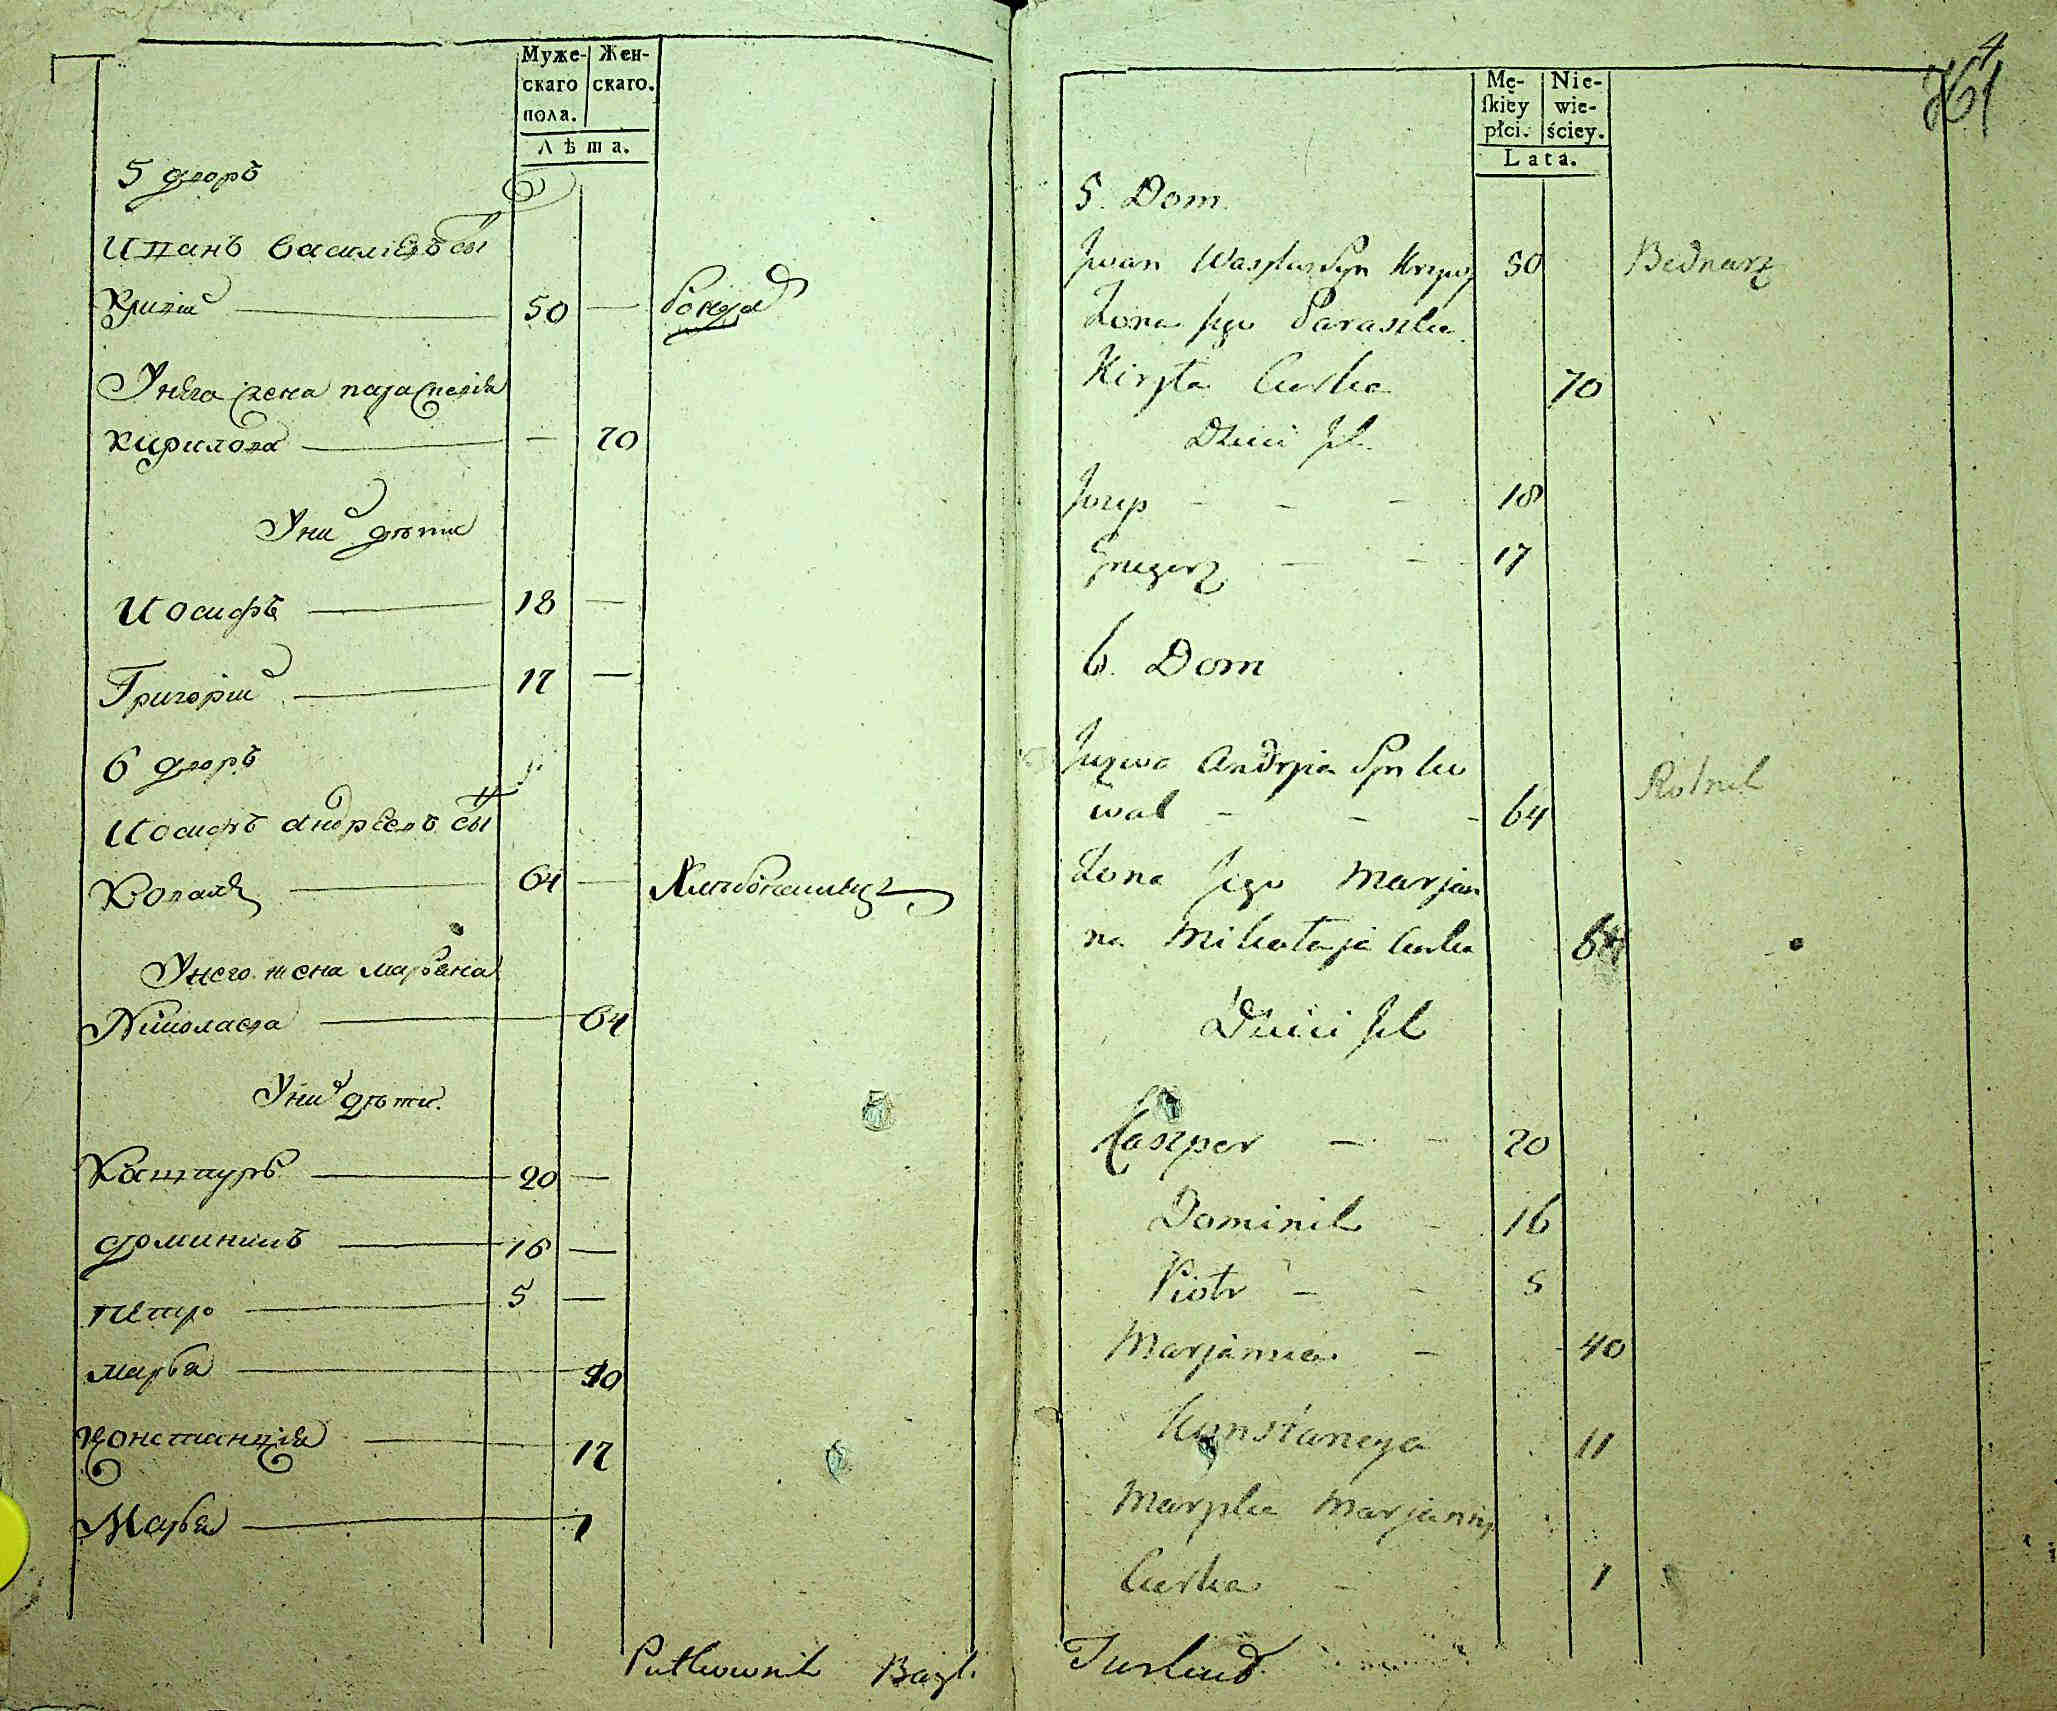 Муже-
скаго
пола.
Жен-
скаго.
Лѣта.
5 дворъ
Иванъ Василіевъ сы
50 — бондар
У нѣго жена параскевія
Кирилова — — 70
У ни дѣти
Иосифъ — 18 —
Григории — 17 —
6 дворъ
Иосифъ андрѣевъ сы
Ковалѣ — 64 —
У него жена марьяна
Николаева — 64
У ни дѣти.
Каспаръ — 20 —
доминикъ — 16 —
петро — 5 —
марья — 40
констанция — 17
Марья — 1
Pułkownik
4
761
Mę-
ſkiey
płci.
Nie-
wie-
ściey.
Lata.
5. Dom
Jwan Wasylu Syn 50 Bednarz
Żona Jego Paraska
Kiryła Curka 70
Dzieci Jch
Jozep - - - 18
Gregerz - - 17
6. Dom
Juzwa Andryia Syn Ko
wal - - - 64 Rolnik
Żona Jego Marjan
na Mikołaja Curka 64
Dzieci Jch
Kasper - - 20
Dominik - 16
Piotr - - 5
Marjanna - - 40
Konstancya 11
Maryka Marjanny
Curka - 1